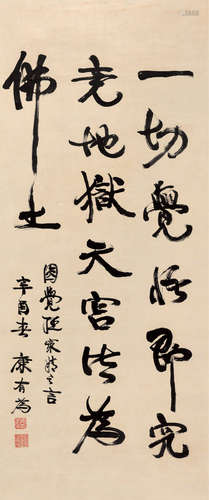 一切覺悟即究
竟地獄天宮皆為
佛土
圓覺經之言
辛酉春 康有為